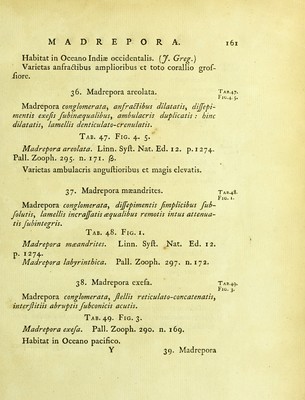 MADREPORA. 161
Habitat in Oceano Indiæ occidentalis. (J. Greg.)
Varietas anfractibus amplioribus et toto corallio gros-
siore.
36. Madrepora areolata. TAB.47.
FIG. 4. 5.
Madrepora conglomerata, anfractibus dilatatis, dissepi-
mentis exesis subinæqualibus, ambulacris duplicatis : hinc
dilatatis, lamellis denticulato-crenulatis.
TAB. 47. FIG. 4. 5.
Madrepora areolata. Linn. Syst. Nat. Ed. 12. p. 1274.
Pall. Zooph. 295. n. 171. β.
Varietas ambulacris angustioribus et magis elevatis.
37. Madrepora mæandrites. TAB.48.
FIG. 1.
Madrepora conglomerata, dissepimentis simplicibus sub-
solutis, lamellis incrassatis æqualibus remotis intus attenua-
tis subintegris.
TAB. 48. FIG. 1.
Madrepora mæandrites. Linn. Syst. Nat. Ed. 12.
p. 1274.
Madrepora labyrinthica. Pall. Zooph. 297. n. 172.
38. Madrepora exesa. TAB.49.
FIG. 3.
Madrepora conglomerata, stellis reticulato-concatenatis,
interstitiis abruptis subconicis acutis.
TAB. 49. FIG. 3.
Madrepora exesa. Pall. Zooph. 290. n. 169.
Habitat in Oceano pacifico.
Y 39. Madrepora